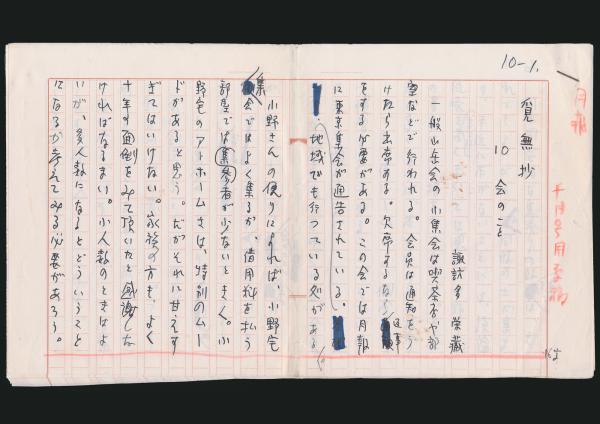 10-1.
月報
十月号用原稿
覚無抄
10 会のこと
諏訪多 栄蔵
一般山岳会の小集会は喫茶店や部
室などで行われる。会員は通知をう
けたら出席する。欠席するなら返事
をする必要がある。この会では月報
に東京集会が通告されている。
地域でも行っている処がある
小野さんの便りによれば、小野宅
集会ではよく集るが、借用料を払う
部屋では参集者が少ないときく。小
野宅のアトホームさは、特別のムー
ドがあると思う。だがそれに甘えす
ぎてはいけない。家族の方も、よく
十年も面倒をみて頂いたと感謝しな
ければなるまい。小人数のときはよ
いが、多人数になるとどういうこと
になるか考えてみる必要があろう。